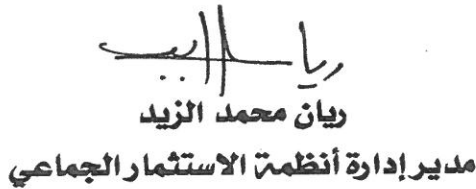 ريان محمد الزيد
مدير إدارة أنظمة الاستثمار الجماعي